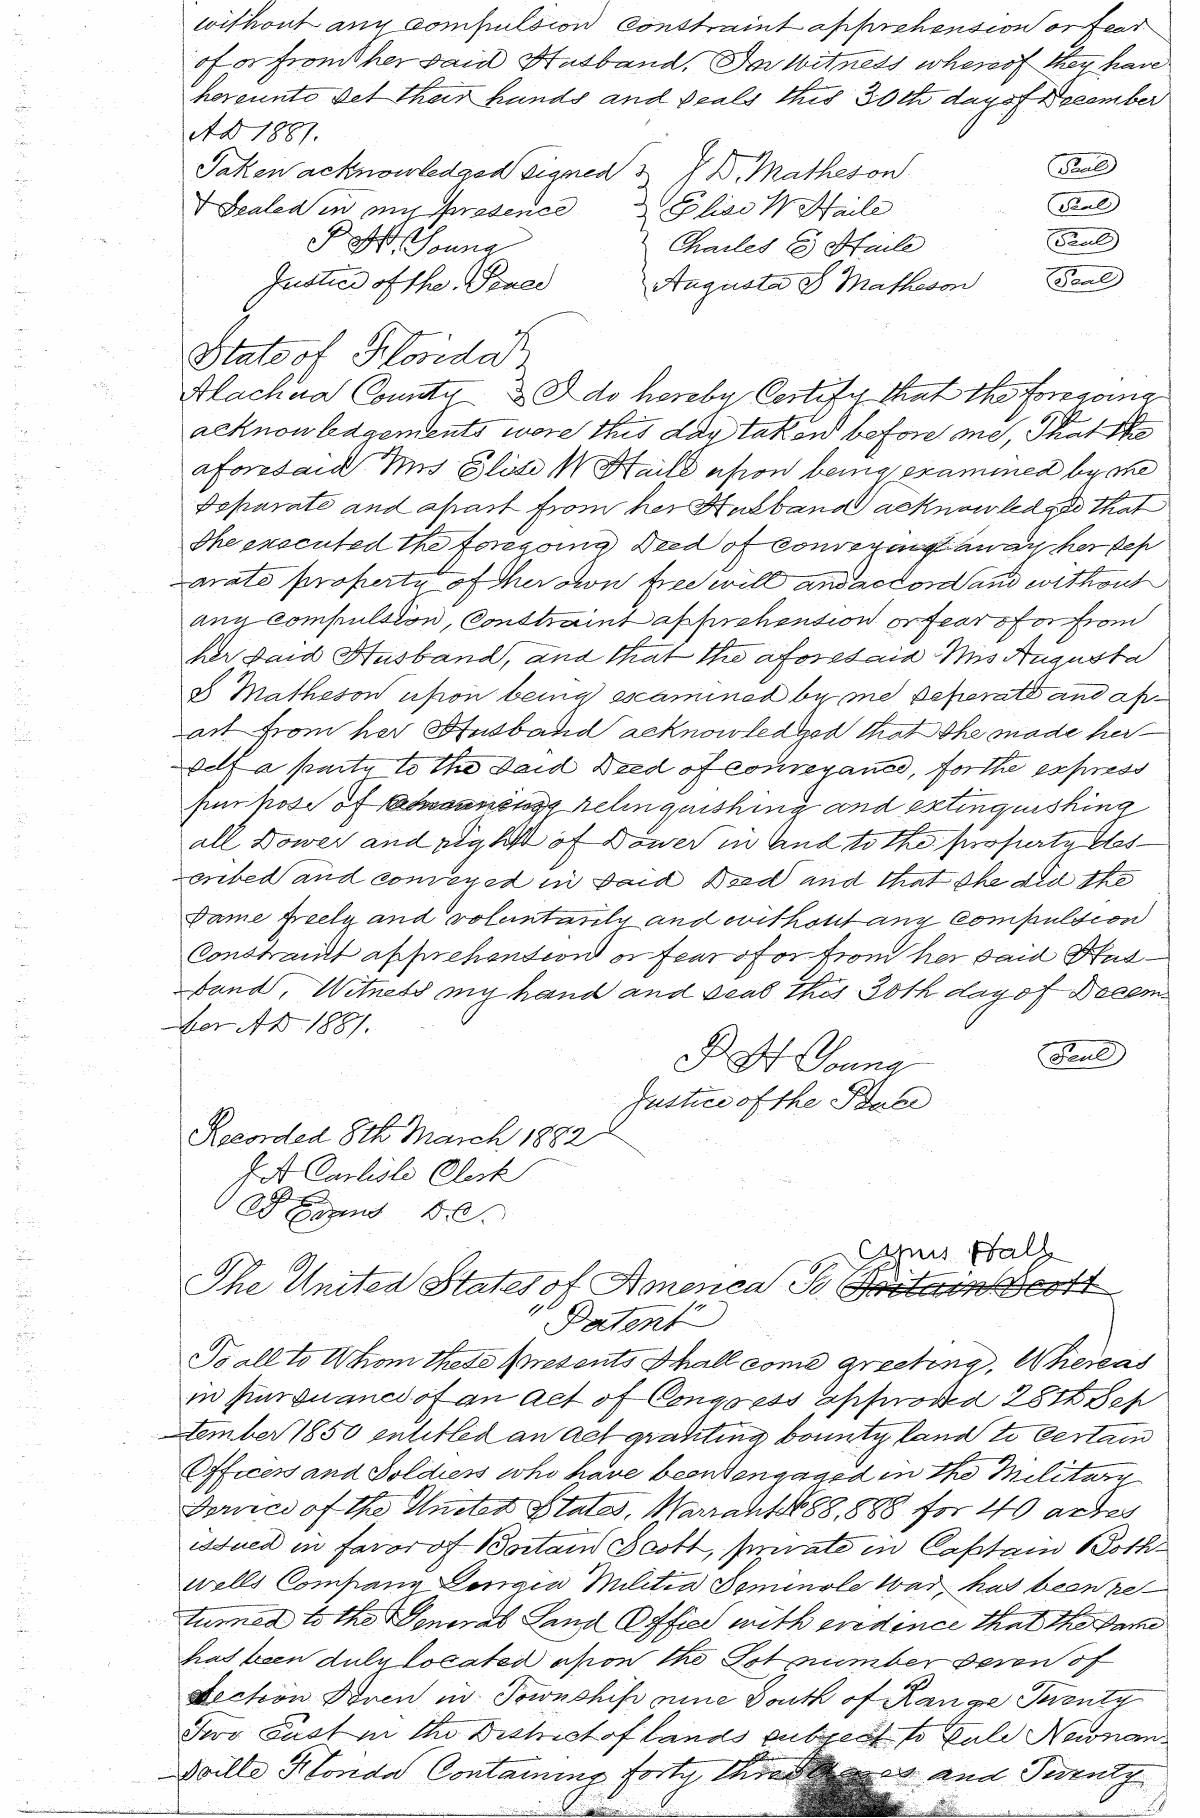 without any compulsion constraint apprehension or fear
of or from her said Husband. In Witness whereof they have
hereunto set their hands and seals this 30th day of December
AD 1881.
Taken acknowledged signed } J D. Matheson Seal
& Sealed in my presence } Elise W Haile Seal
P H. Young } Charles E Haile Seal
Justice of the Peace } Augusta S Matheson Seal
State of Florida }
Alachua County } I do hereby Certify that the foregoing
acknowledgements were this day taken before me, That the
aforesaid Mrs Elise W Haile upon being examined by me
separate and apart from her Husband acknowledged that
she executed the foregoing Deed of conveying away her sep
arate property of her own free will and accord and without
any compulsion, constraint apprehension or fear of or from
her said Husband, and that the aforesaid Mrs Augusta
S Matheson upon being examined by me seperate and ap-
art from her Husband acknowledged that she made her-
self a party to the said Deed of conveyance, for the express
purpose of relinquishing and extinguishing
all Dower and right of Dower in and to the property des-
cribed and conveyed in said Deed and that she did the
same freely and voluntarily and without any compulsion
Constraint apprehension or fear of or from her said Hus-
band. Witness my hand and seal this 30th day of Decem-
ber AD 1881.
P H Young Seal
Justice of the Peace
Recorded 8th March 1882
J A Carlisle Clerk
Evans D.C.
Cyrus Hall
The United States of America To Britain Scott
"Patent"
To all to Whom these presents shall come greeting, Whereas
in pursuance of an act of Congress approved 28th Sep
tember 1850 entitled an act granting bounty land to certain
Officers and Soldiers who have been engaged in the Military
Service of the United States, Warrant No 88,888 for 40 acres
issued in favor of Britain Scott, private in Captain Both-
wells Company Georgia Militia Seminole War, has been re-
turned to the General Land Office with evidence that the same
has been duly located upon the Lot number seven of
Section Seven in Township nine South of Range Twenty
Two East in the District of lands subject to Sale Newnan-
sville Florida Containing forty three acres and Twenty